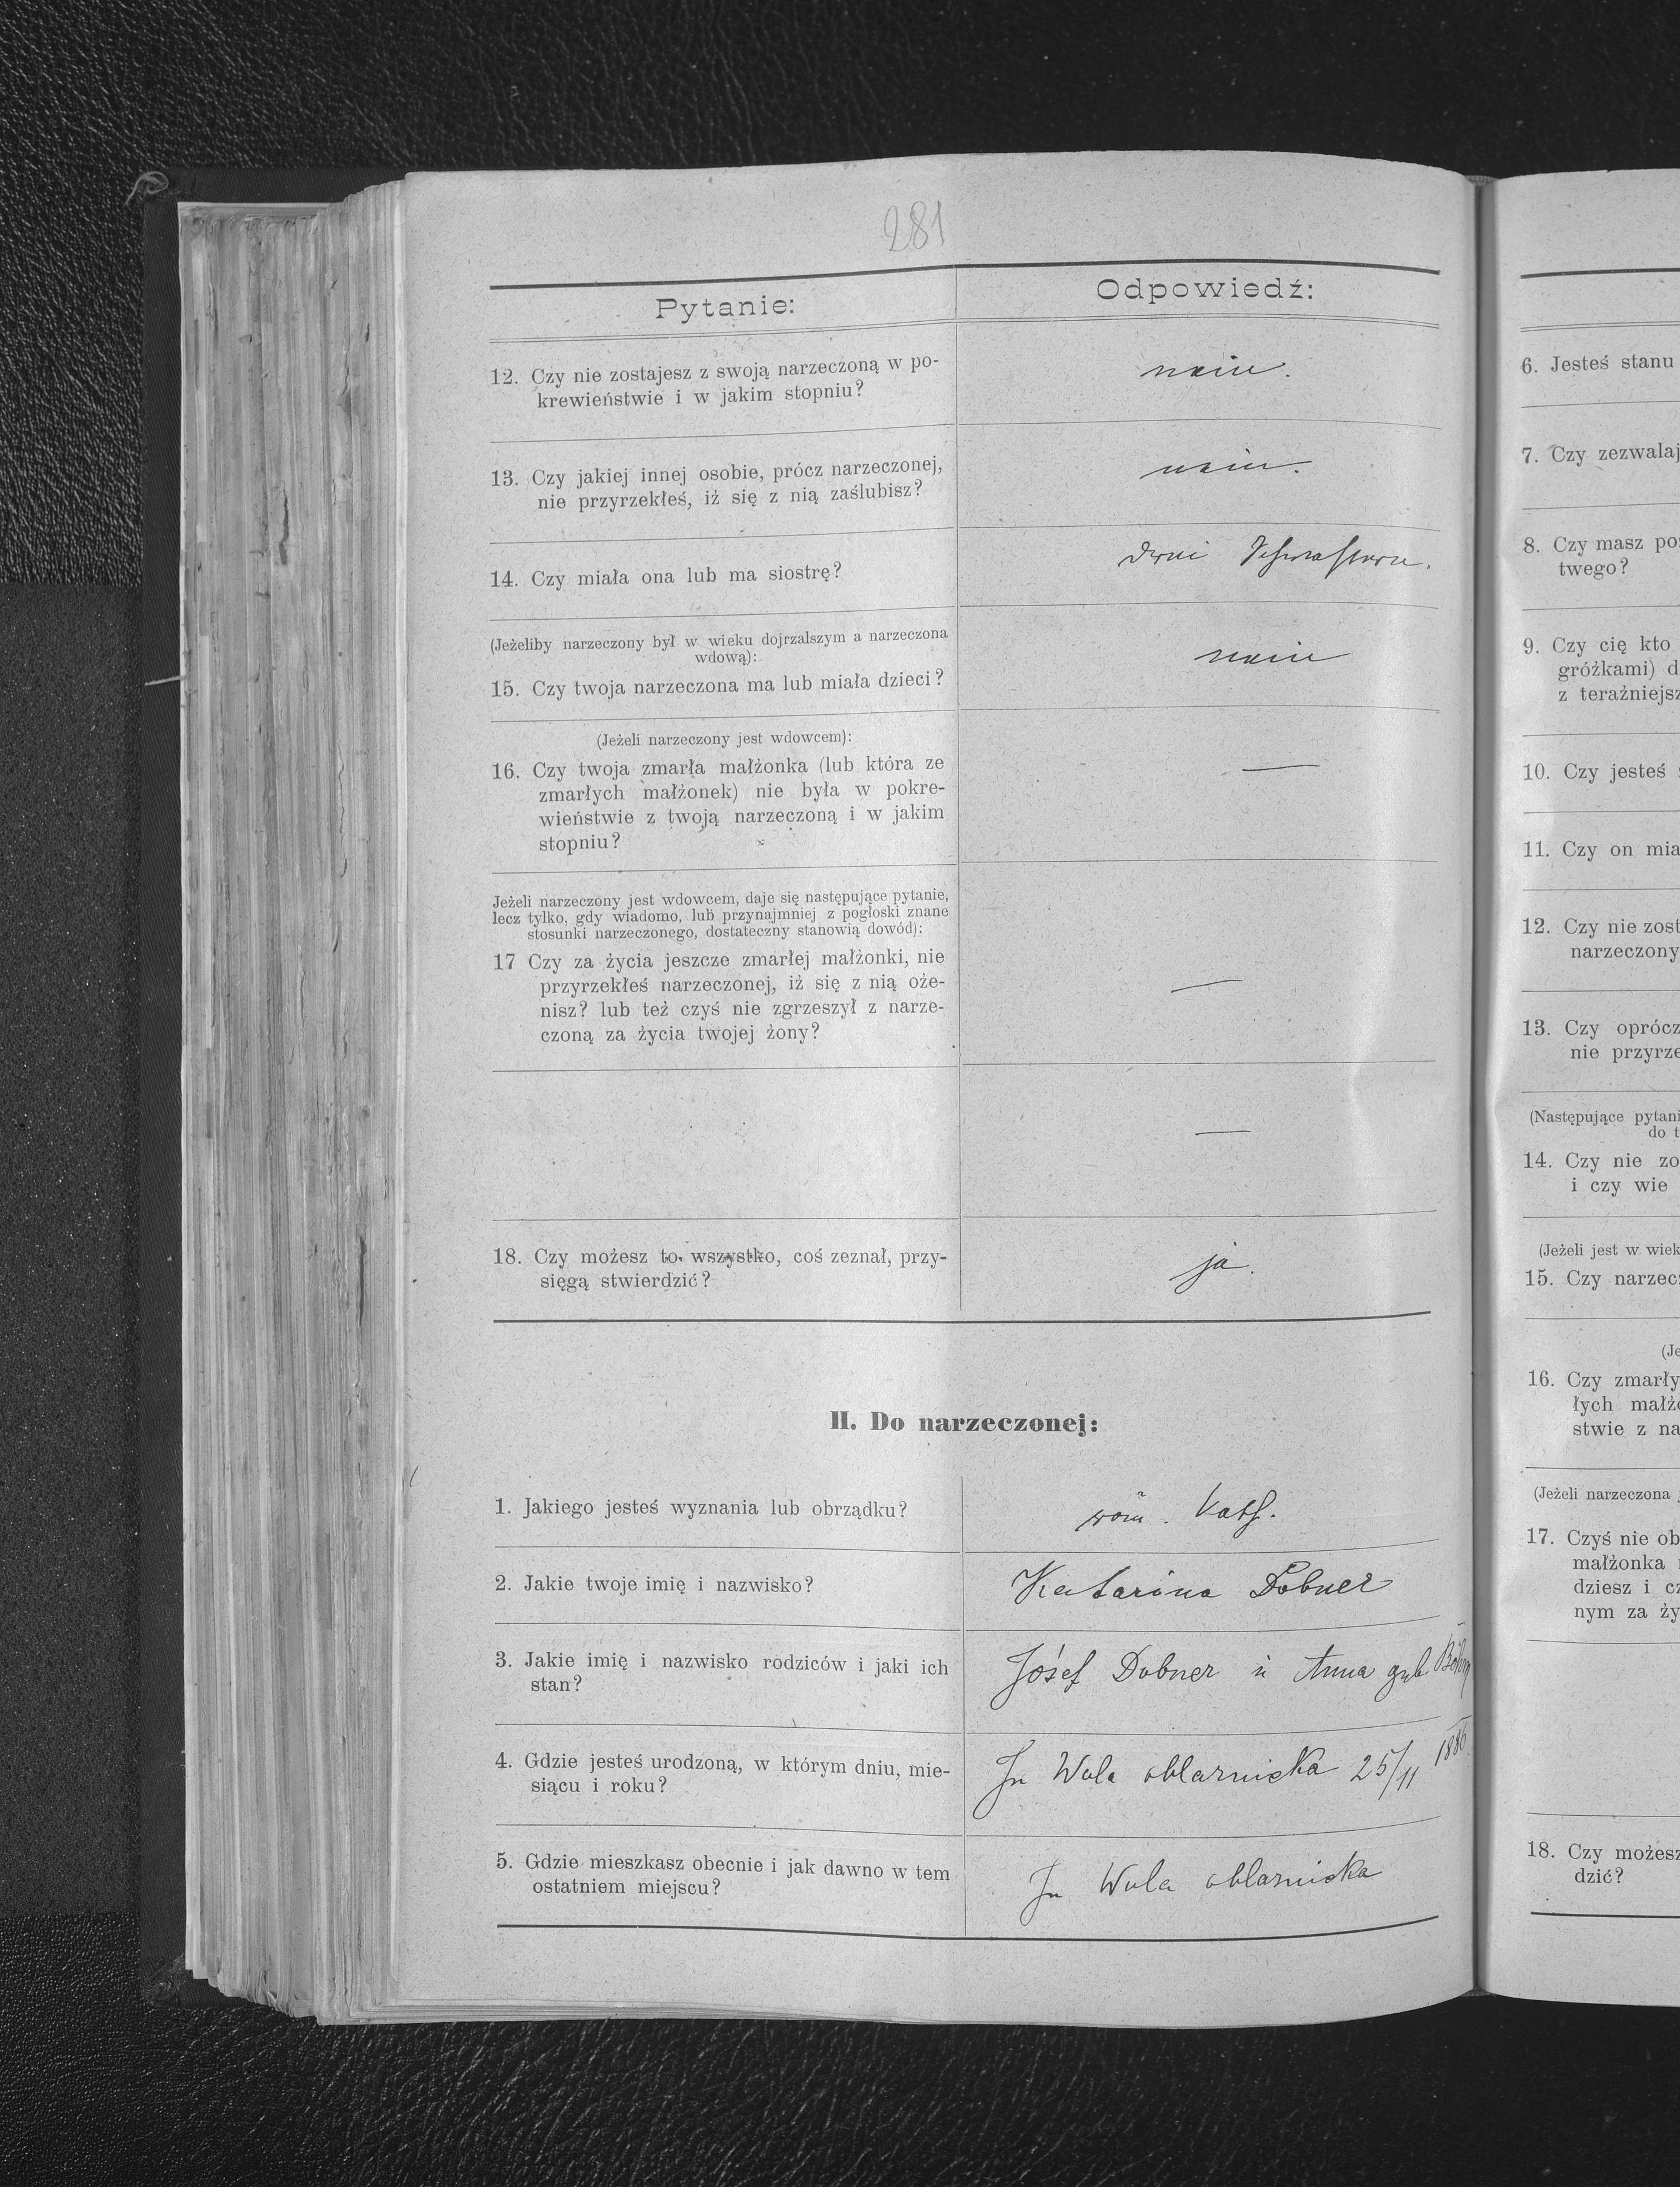 281
Pytanie:
Odpowiedź:
12. Czy nie zostajesz z swoją narzeczoną w po-
krewieństwie i w jakim stopniu?
nein.
13. Czy jakiej innej osobie, prócz narzeczonej,
nie przyrzekłeś, iż się z nią zaślubisz?
nein.
14. Czy miała ona lub ma siostrę?
drei Schwestern.
(Jeżeliby narzeczony był w wieku dojrzalszym a narzeczona
wdową):
15. Czy twoja narzeczona ma lub miała dzieci?
nein
(Jeżeli narzeczony jest wdowcem):
16. Czy twoja zmarła małżonka (lub która ze
zmarłych małżonek) nie była w pokre-
wieństwie z twoją narzeczoną i w jakim
stopniu?
—
Jeżeli narzeczony jest wdowcem, daje się następujące pytanie,
lecz tylko, gdy wiadomo, lub przynajmniej z pogłoski znane
stosunki narzeczonego, dostateczny stanowią dowód):
17 Czy za życia jeszcze zmarłej małżonki, nie
przyrzekłeś narzeczonej, iż się z nią oże-
nisz? lub też czyś nie zgrzeszył z narze-
czoną za życia twojej żony?
—
—
18. Czy możesz to wszystko, coś zeznał, przy-
sięgą stwierdzić?
ja.
II. Do narzeczonej:
1. Jakiego jesteś wyznania lub obrządku?
röm. Kath.
2. Jakie twoje imię i nazwisko?
Katarina Dobner
3. Jakie imię i nazwisko rodziców i jaki ich
stan?
Józef Dobner u Anna geb.
4. Gdzie jesteś urodzoną, w którym dniu, mie-
siącu i roku?
In Wola oblaznicka 25/11 1886
5. Gdzie mieszkasz obecnie i jak dawno w tem
ostatniem miejscu?
In Wola oblaznicka
6. Jesteś stanu
7. Czy zezwalaj
8. Czy masz po
twego?
9. Czy cię kto
gróżkami) d
z teraźniejsz
10. Czy jesteś
11. Czy on mia
12. Czy nie zost
narzeczony
13. Czy oprócz
nie przyrze
(Następujące pytani
do t
14. Czy nie zo
i czy wie
(Jeżeli jest w wiek
15. Czy narzecz
(Je
16. Czy zmarły
łych małżo
stwie z na
(Jeżeli narzeczona
17. Czyś nie ob
małżonka
dziesz i cz
nym za ży
18. Czy możesz
dzić?